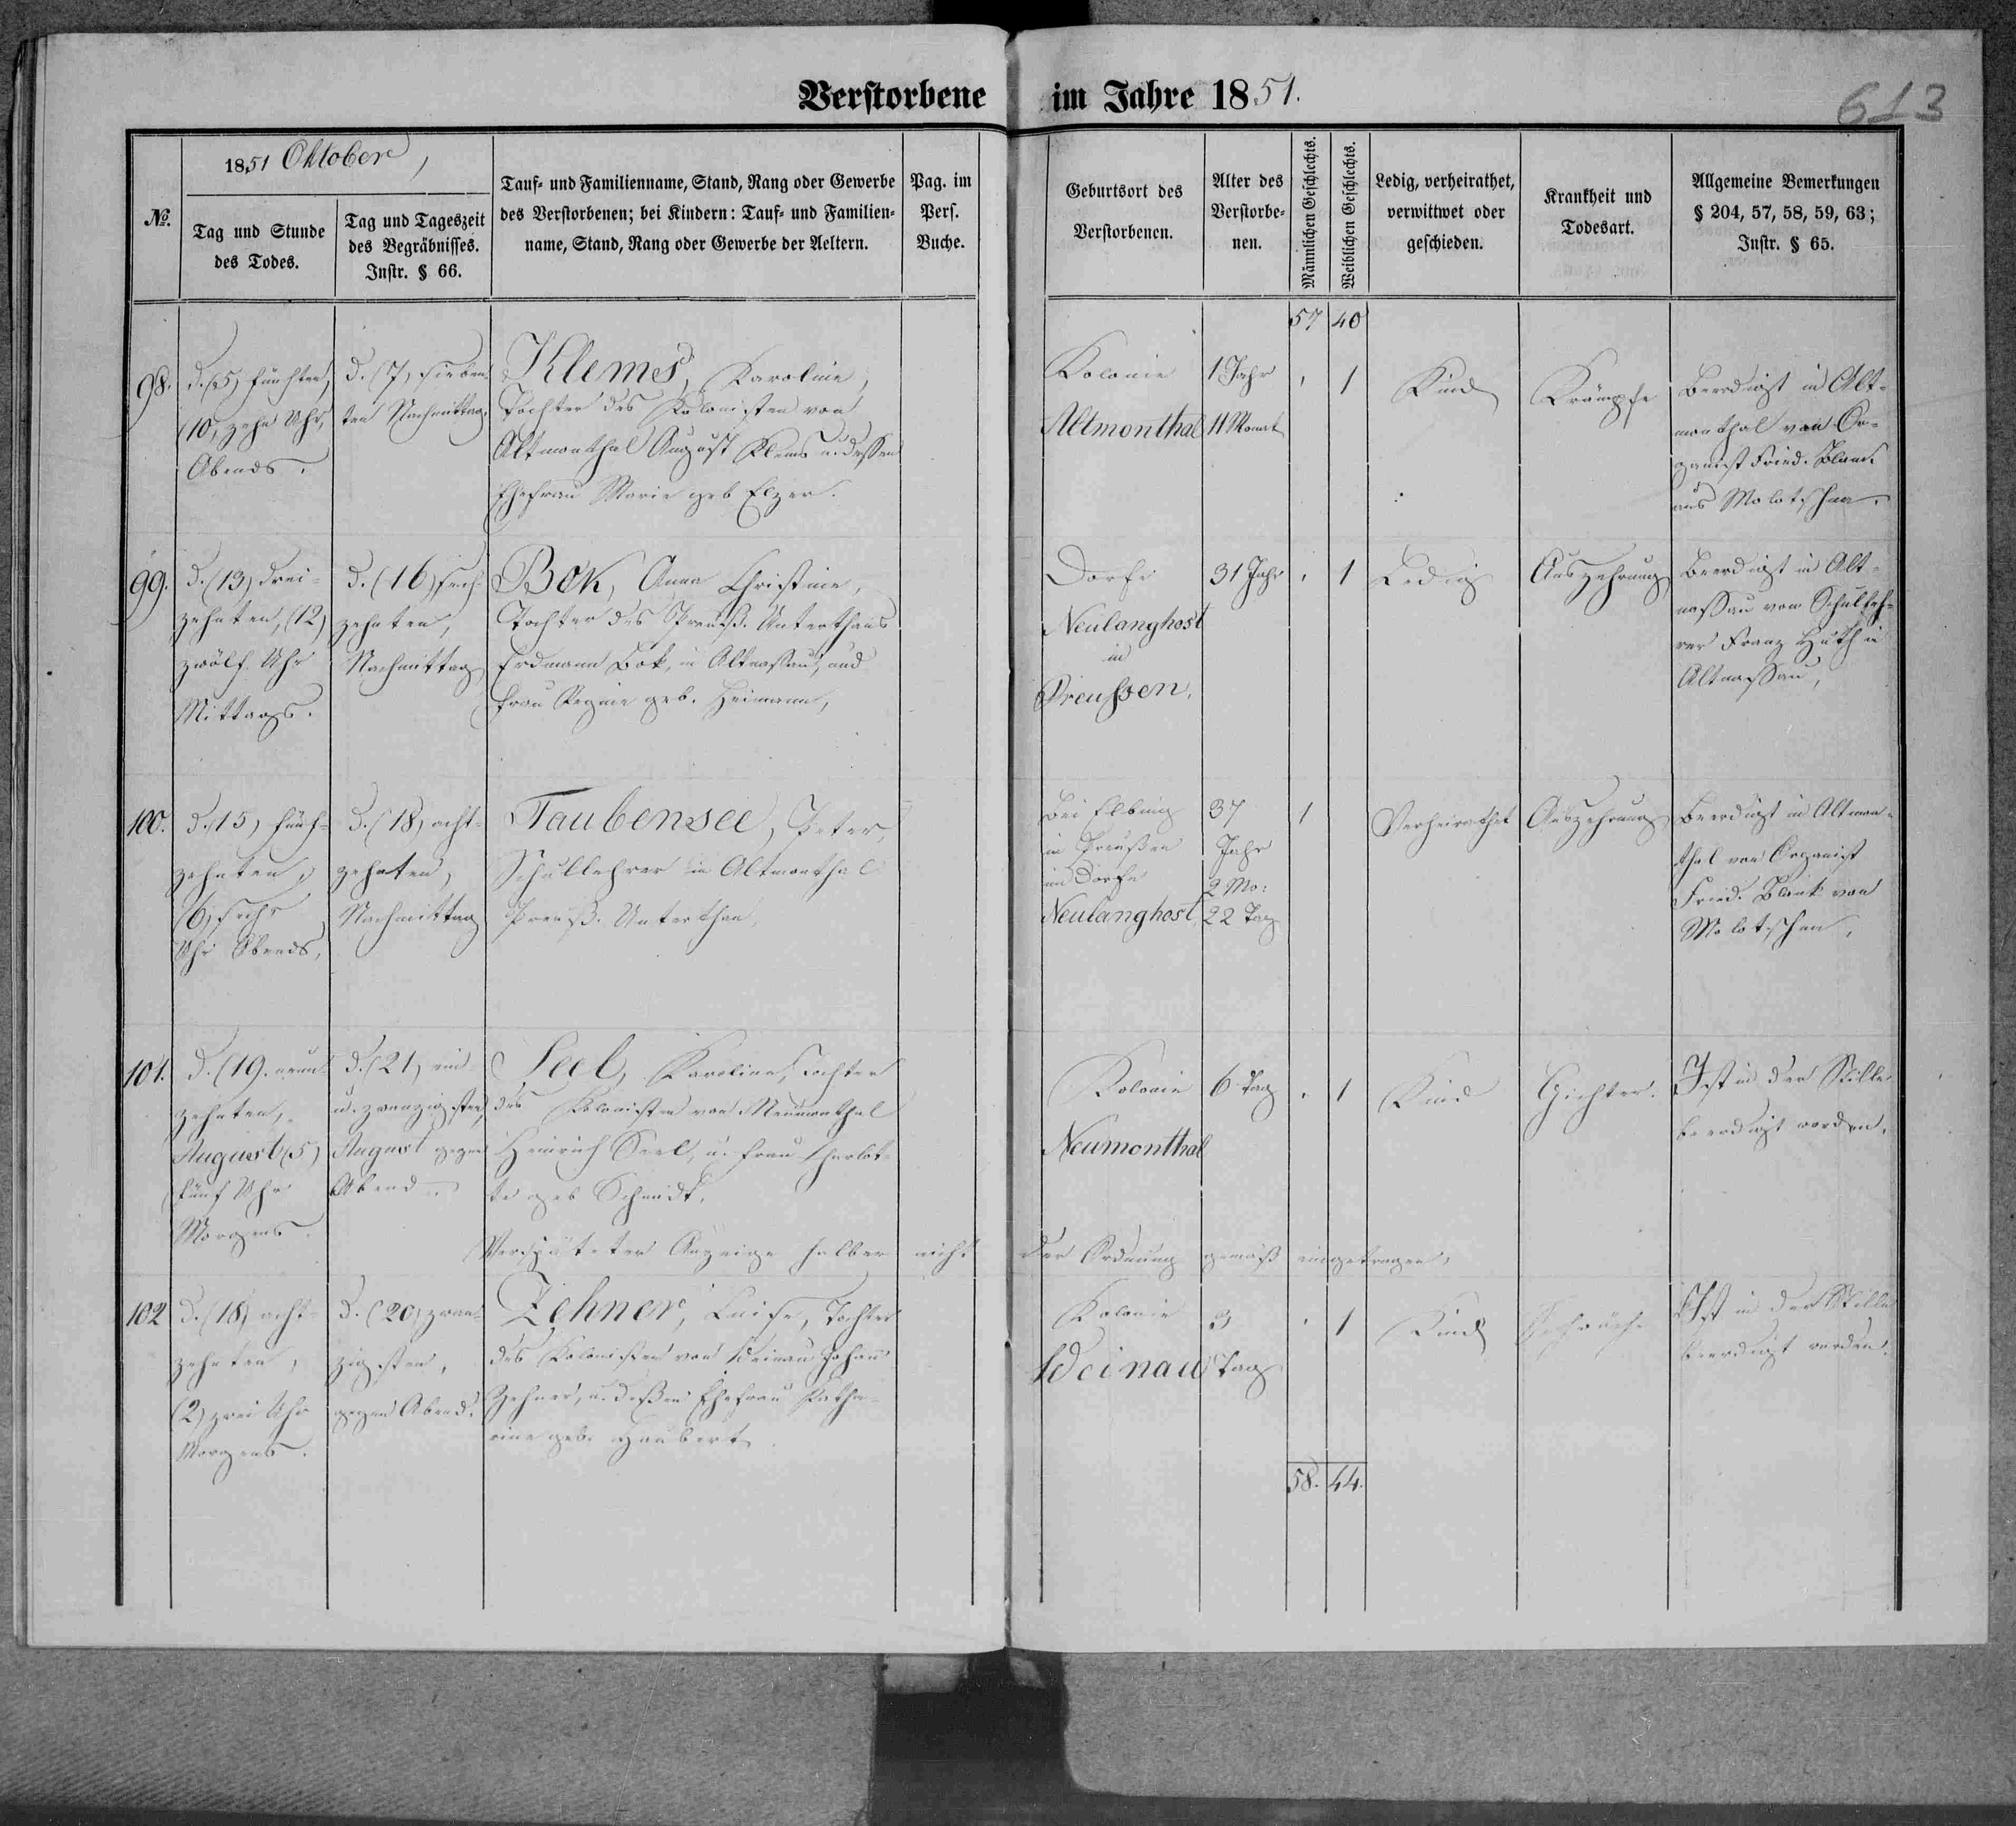 Verstorbene im Jahre 1851.
613
№.
1851 Oktober,
Tag und Stunde
des Todes.
Tag und Tageszeit
des Begräbnisses.
Instr. § 66.
Tauf- und Familienname, Stand, Rang oder Gewerbe
des Verstorbenen; bei Kindern: Tauf- und Familien-
name, Stand, Rang oder Gewerbe der Aeltern.
Pag. im
Pers.
Buche.
Geburtsort des
Verstorbenen.
Alter des
Verstorbe-
nen.
Männlichen Geschlechts.
Weiblichen Geschlechts.
Ledig, verheirathet,
verwittwet oder
geschieden.
Krankheit und
Todesart.
Allgemeine Bemerkungen
§ 204, 57, 58, 59, 63;
Instr. § 65.
57 40
98.
d. (5) fünften,
(10) zehn Uhr,
Abends.
d. (7) sieben-
ten Nachmittag.
Klems, Karoline,
Tochter des Kolonisten von
Altmonthal August Klems u. dessen
Ehefrau Marie geb Elzer.
Kolonie
Altmonthal
1 Jahr
11 Monat
1
Kind
Krämpfe
Beerdigt in Alt-
monthal von Or-
ganist Fried. Blank
aus Molotschna.
99.
d. (13) drei-
zehnten, (12)
zwölf Uhr
Mittags.
d. (16) sech-
zehnten,
Nachmittag
Bok, Anna Christine,
Tochter des Preuß. Unterthans
Erdmann Bok, in Altnassau, und
Frau Regine geb. Heimann,
Dorfe
Neulanghost
in
Preussen.
31 Jahr
1
Ledig
Auszehrung
Beerdigt in Alt-
nassau vom Schulleh-
rer Franz Huth in
Altnassau,
100.
d. (15) fünf-
zehnten,
(6) sechs
Uhr Abends,
d. (18) acht-
zehnten,
Nachmittag
Taubensee, Peter,
Schullehrer in Altmonthal
Preuß. Unterthan,
Bei Elbing
in Preußen
im Dorfe
Neulanghost,
37
Jahr
2 Mo:
22 Tag
1
Verheirathet
Auszehrung
Beerdigt in Altmon-
thal von Organist
Fried. Blank von
Molotschna,
101.
d. (19. neun-
zehnten,
August (5)
fünf Uhr
Morgens.
d. (21) ein
u. zwanzigsten,
August gegen
Abend.
Seel, Karoline, Tochter
des Kolonisten von Neumonthal
Heinrich Seel, u. Frau Charlot-
te geb Schmidt.
Kolonie
Neumonthal
6 Tag
1
Kind
Gichter.
Ist in der Stille
beerdigt worden.
Verspäteter Anzeige halber nicht der Ordnung gemäß eingetragen,
102
d. (18) acht-
zehnten,
(2) zwei Uhr
Morgens.
d. (20) zwan-
zigsten,
gegen Abend.
Zehner, Luise, Tochter
des Kolonisten von Weinau Johann
Zehner, u. deßen Ehefrau Katha-
rine geb. Haubert
Kolonie
Weinau
3
Tag
1
Kind
Schwäche
Ist in der Stille
beerdigt worden.
58. 44.